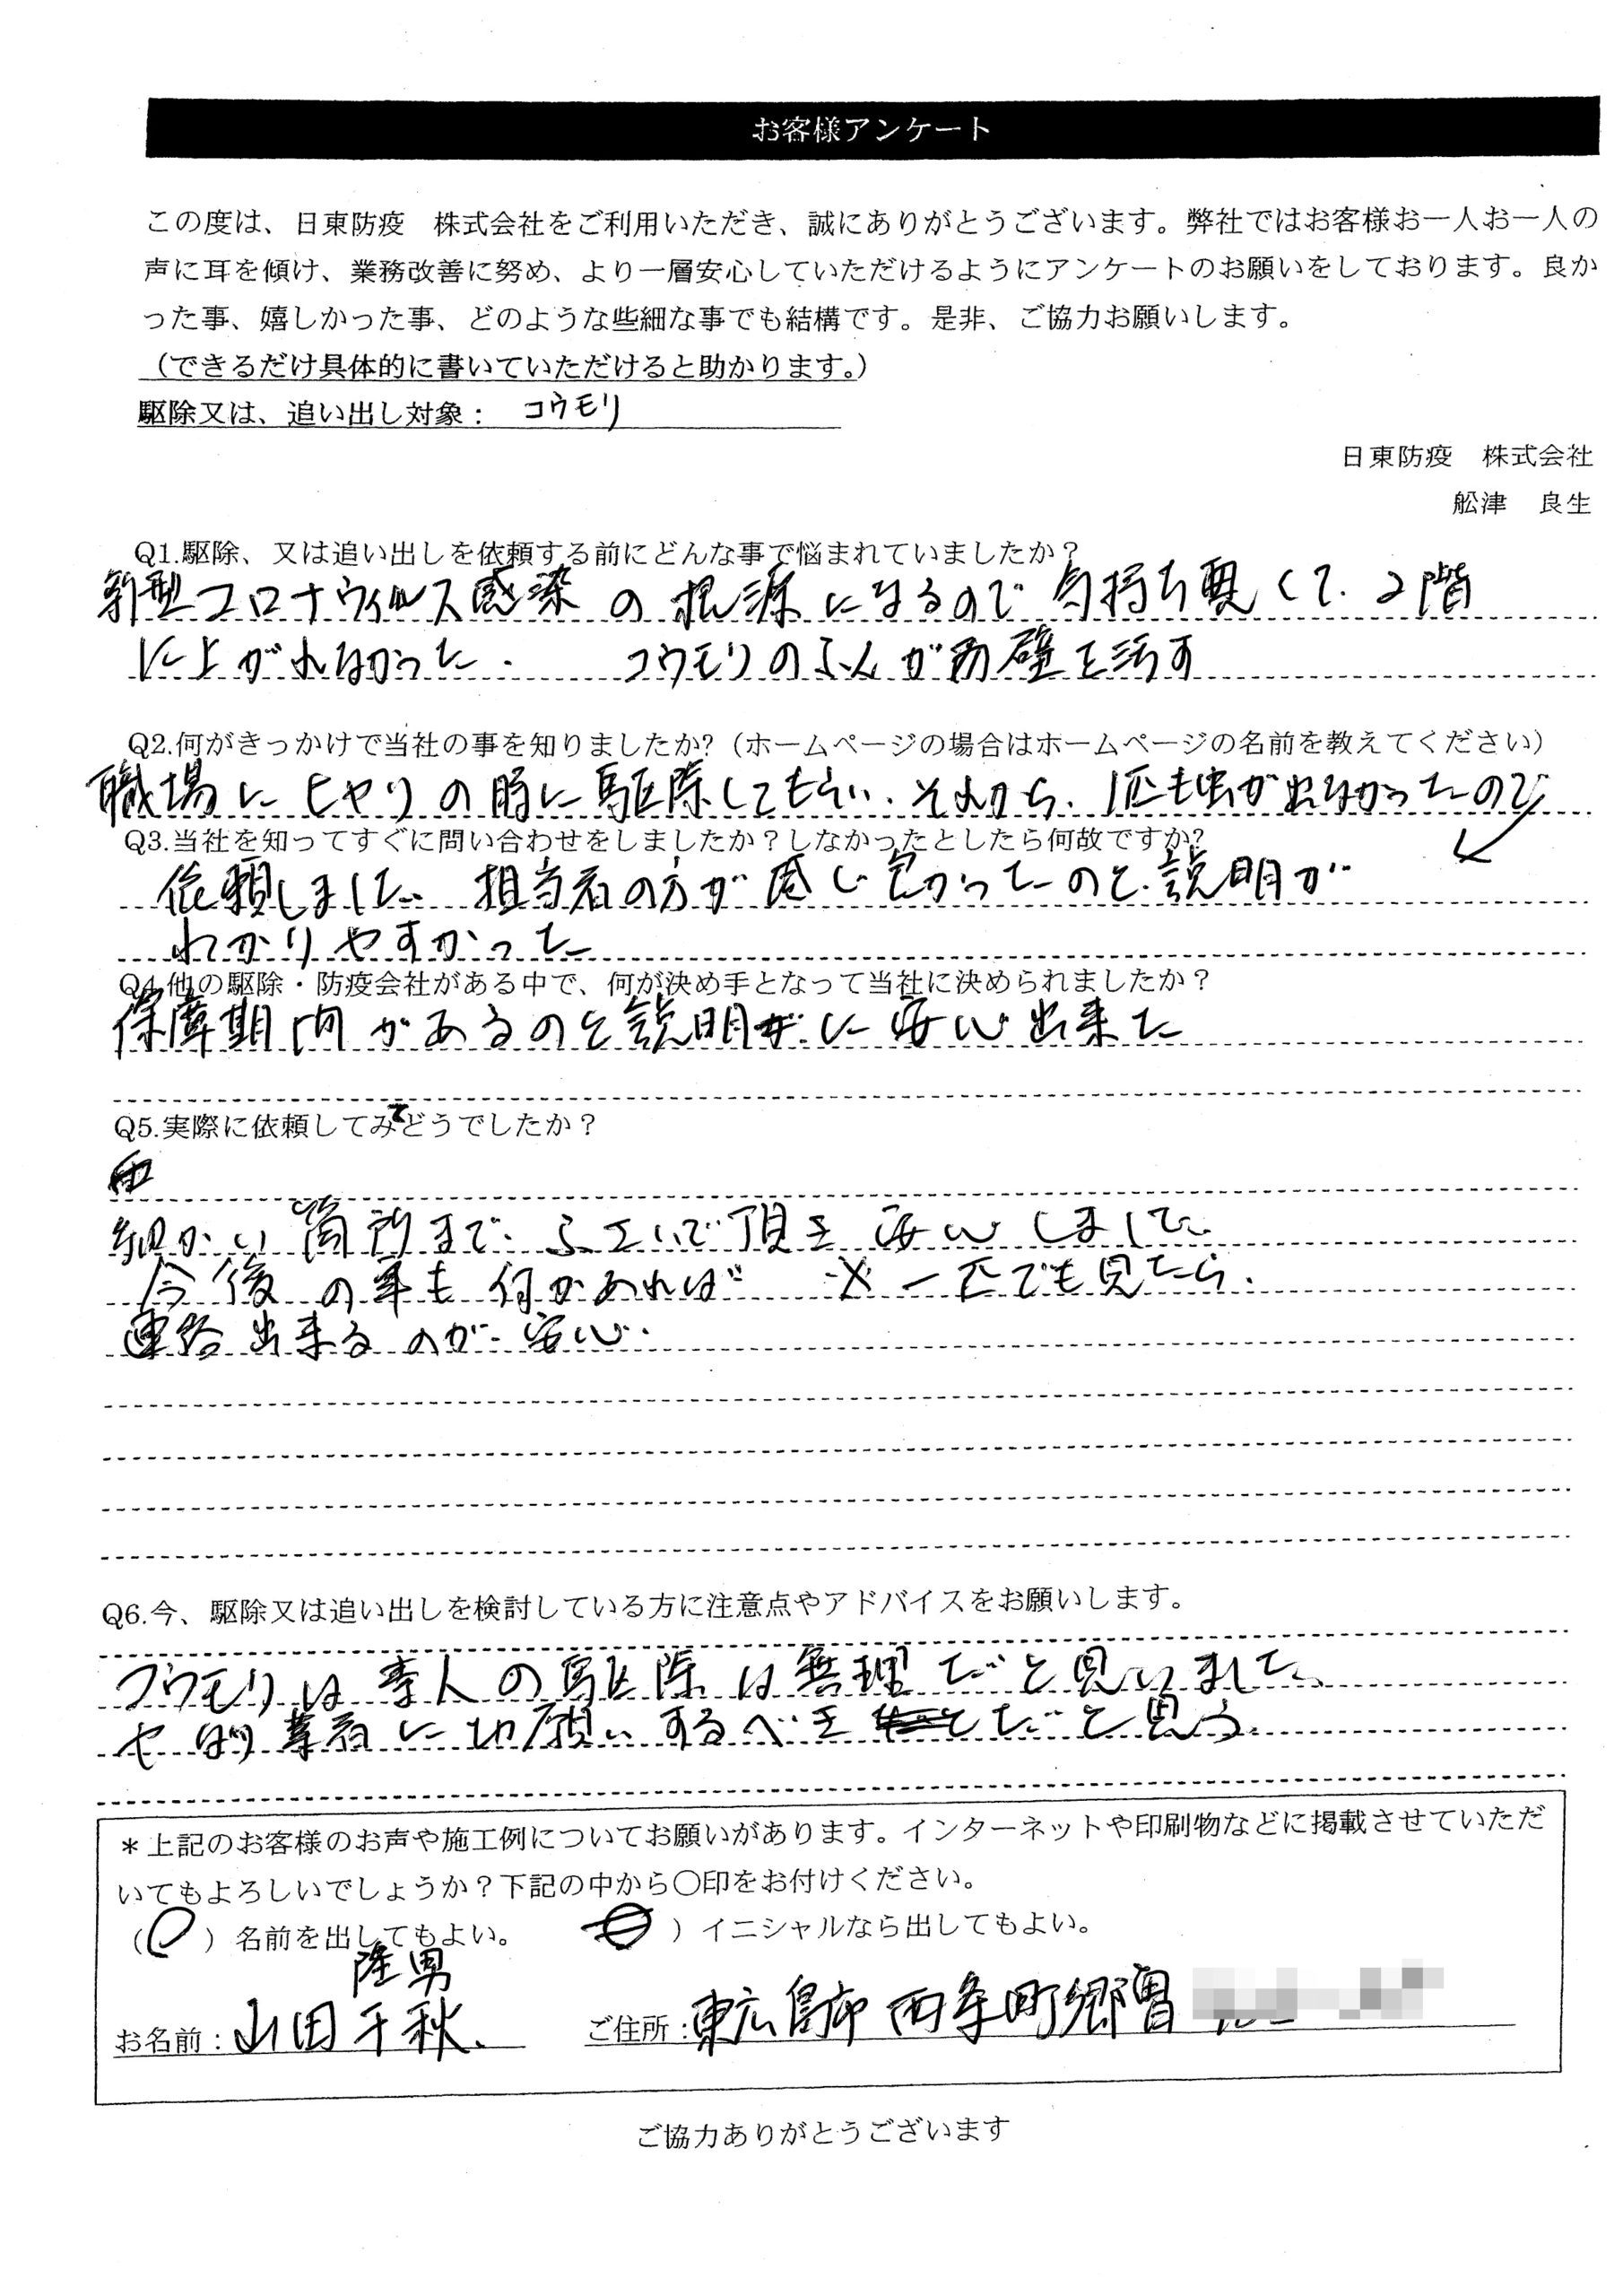 お客様アンケート
この度は、日東防疫　株式会社をご利用いただき、誠にありがとうございます。弊社ではお客様お一人お一人の
声に耳を傾け、業務改善に努め、より一層安心していただけるようにアンケートのお願いをしております。良か
った事、嬉しかった事、どのような些細な事でも結構です。是非、ご協力お願いします。
（できるだけ具体的に書いていただけると助かります。）
駆除又は、追い出し対象： コウモリ
日東防疫　株式会社
舩津　良生
Q1.駆除、又は追い出しを依頼する前にどんな事で悩まれていましたか？
新型コロナウィルス感染の根源になるので気持ち悪くて、2階
に上がれなかった． コウモリのふんが内壁を汚す
Q2.何がきっかけで当社の事を知りましたか?（ホームページの場合はホームページの名前を教えてください）
職場にヒヤリの時に駆除してもらい、それから、1匹も虫が出なかったので
Q3.当社を知ってすぐに問い合わせをしましたか？しなかったとしたら何故ですか?
依頼しました、担当者の方が感じ良かったのと、説明が
わかりやすかった
Q4.他の駆除・防疫会社がある中で、何が決め手となって当社に決められましたか？
保障期間があるのと説明に安心出来た
Q5.実際に依頼してみてどうでしたか？
細かい箇所まで、ふさいで頂き安心しました
今後の事も何かあれば ※一匹でも見たら、
連絡出来るのが安心．
Q6.今、駆除又は追い出しを検討している方に注意点やアドバイスをお願いします。
コウモリは素人の駆除は無理だと思いました、
やはり業者にお願いするべきだと思う．
＊上記のお客様のお声や施工例についてお願いがあります。インターネットや印刷物などに掲載させていただ
いてもよろしいでしょうか？下記の中から〇印をお付けください。
（〇）名前を出してもよい。 ）イニシャルなら出してもよい。
隆男
お名前：山田千秋、 ご住所：東広島市西条町郷曽
ご協力ありがとうございます